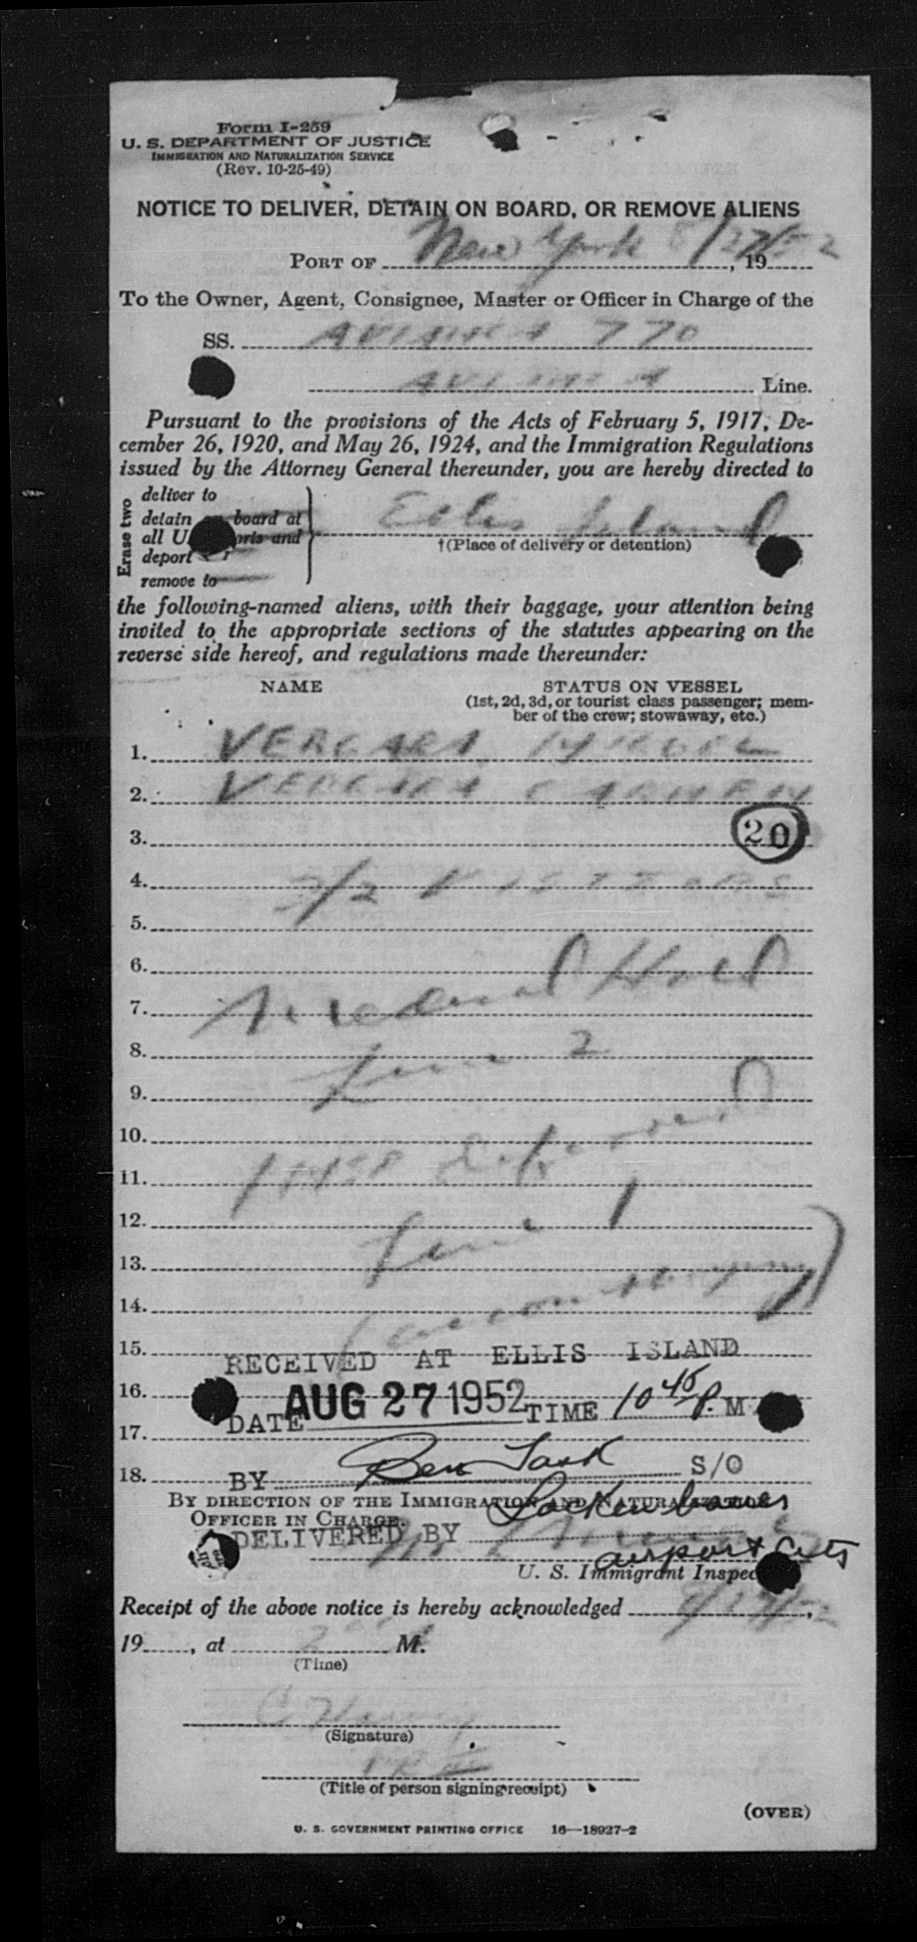 Form I-259
U. S. DEPARTMENT OF JUSTICE
IMMIGRATION AND NATURALIZATION SERVICE
(Rev. 10-25-49)
NOTICE TO DELIVER, DETAIN ON BOARD, OR REMOVE ALIENS
PORT OF New York 8/27/52, 19
To the Owner, Agent, Consignee, Master or Officer in Charge of the
SS. AVIANCA 770
AVIANCA Line.
Pursuant to the provisions of the Acts of February 5, 1917, De-
cember 26, 1920, and May 26, 1924, and the Immigration Regulations
issued by the Attorney General thereunder, you are hereby directed to
Erase two
deliver to
detain board at
all and
deport
remove to
Ellis Island
†(Place of delivery or detention)
the following-named aliens, with their baggage, your attention being
invited to the appropriate sections of the statutes appearing on the
reverse side hereof, and regulations made thereunder:
NAME STATUS ON VESSEL
(1st, 2d, 3d, or tourist class passenger; mem-
ber of the crew; stowaway, etc.)
1. VERGARA
2. VERGARA CARMEN
3. 20
4. 3/2 VISITORS
5.
6.
7. Medical Hold
8.
9. Line 2
10.
11. Deferred
12.
13. Line 1
14. (accompanying)
15. RECEIVED AT ELLIS ISLAND
16. DATE AUG 27 1952 TIME 10 45 P. M
17.
18. BY Ben S/O
BY DIRECTION OF THE IMMIGRATION AND NATURALIZATION
OFFICER IN CHARGE.
DELIVERED BY
airport
U. S. Immigrant Inspec
Receipt of the above notice is hereby acknowledged 8/27/52,
19, at M.
(Time)
(Signature)
(Title of person signing receipt)
(OVER)
U. S. GOVERNMENT PRINTING OFFICE 16—18927-2